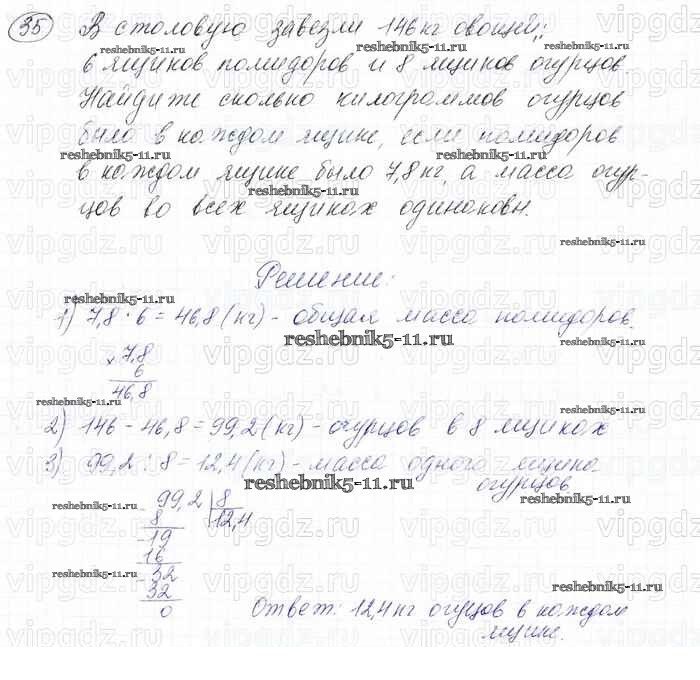 35 В столовую завезли 146 кг овощей:
6 ящиков помидоров и 8 ящиков огурцов.
Найдите сколько килограммов огурцов
было в каждом ящике, если помидоров
в каждом ящике было 7,8 кг, а масса огур-
цов во всех ящиках одинаковы.
Решение:
1) 7,8 · 6 = 46,8 (кг) - общая масса помидоров.
× 7,8
6
46,8
2) 146 - 46,8 = 99,2 (кг) - огурцов в 8 ящиках
3) 99,2 : 8 = 12,4 (кг) - масса одного ящика
огурцов
- 99,2 | 8
8 12,4
- 19
16
- 32
32
0
Ответ: 12,4 кг огурцов в каждом
ящике.
reshebnik5-11.ru
vipgdz.ru